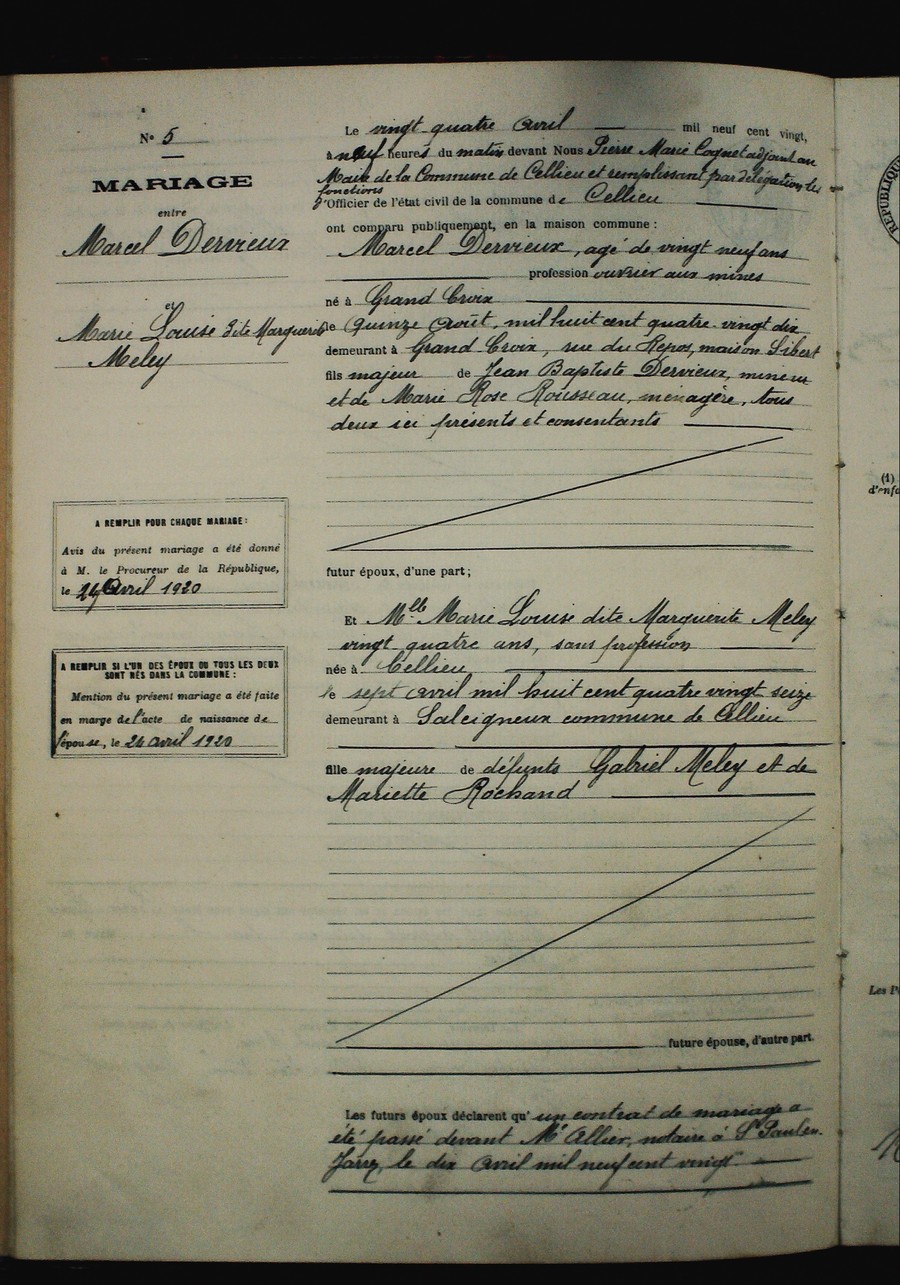 N° 5
MARIAGE
entre
Marcel Dervieux
et
Marie Louise dite Marguerite
Meley
A REMPLIR POUR CHAQUE MARIAGE :
Avis du présent mariage a été donné
à M. le Procureur de la République,
le 24 Avril 1920
A REMPLIR SI L'UN DES ÉPOUX OU TOUS LES DEUX
SONT NÉS DANS LA COMMUNE :
Mention du présent mariage a été faite
en marge de l'acte de naissance de
l'épouse, le 24 avril 1920
Le vingt quatre Avril mil neuf cent vingt,
à neuf heures du matin devant Nous Pierre Marie Coqnet adjoint au
Maire de la Commune de Cellieu et remplissant par délégation les
fonctions
d'Officier de l'état civil de la commune de Cellieu
ont comparu publiquement, en la maison commune :
Marcel Dervieux, agé de vingt neuf ans
profession ouvrier aux mines
né à Grand Croix
le quinze Août, mil huit cent quatre-vingt dix
demeurant à Grand Croix, rue du Repos, maison Libert
fils majeur de Jean Baptiste Dervieux, mineur
et de Marie Rose Rousseau, ménagère, tous
deux ici présents et consentants
futur époux, d'une part ;
Et Mlle Marie Louise dite Marguerite Meley
vingt quatre ans, sans profession
née à Cellieu
le sept avril mil huit cent quatre vingt seize
demeurant à Salcigneux commune de Cellieu
fille majeure de défunts Gabriel Meley et de
Mariette Rochand
future épouse, d'autre part.
Les futurs époux déclarent qu'un contrat de mariage a
été passé devant Me Allier, notaire à St Paul en
Jarez, le dix Avril mil neuf cent vingt
(1)
d'enfa
Les P